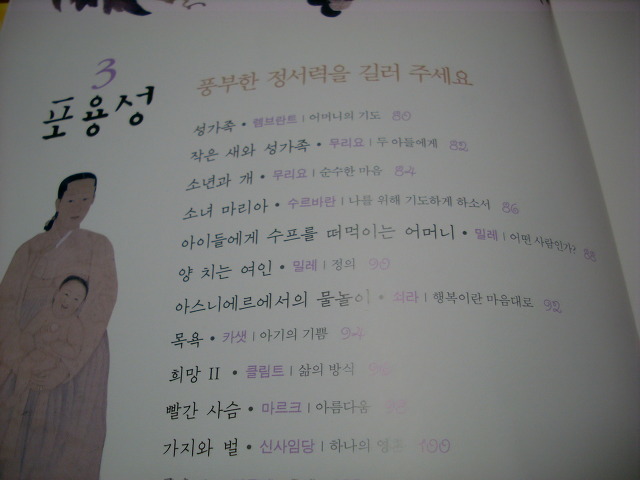 3
포용성
풍부한 정서력을 길러 주세요
성가족 • 렘브란트 | 어머니의 기도 80
작은 새와 성가족 • 무리요 | 두 아들에게 82
소년과 개 • 무리요 | 순수한 마음 84
소녀 마리아 • 수르바란 | 나를 위해 기도하게 하소서 86
아이들에게 수프를 떠먹이는 어머니 • 밀레 | 어떤 사람인가? 88
양 치는 여인 • 밀레 | 정의 90
아스니에르에서의 물놀이 • 쇠라 | 행복이란 마음대로 92
목욕 • 카샛 | 아기의 기쁨 94
희망 II • 클림트 | 삶의 방식 96
빨간 사슴 • 마르크 | 아름다움 98
가지와 벌 • 신사임당 | 하나의 영혼 100